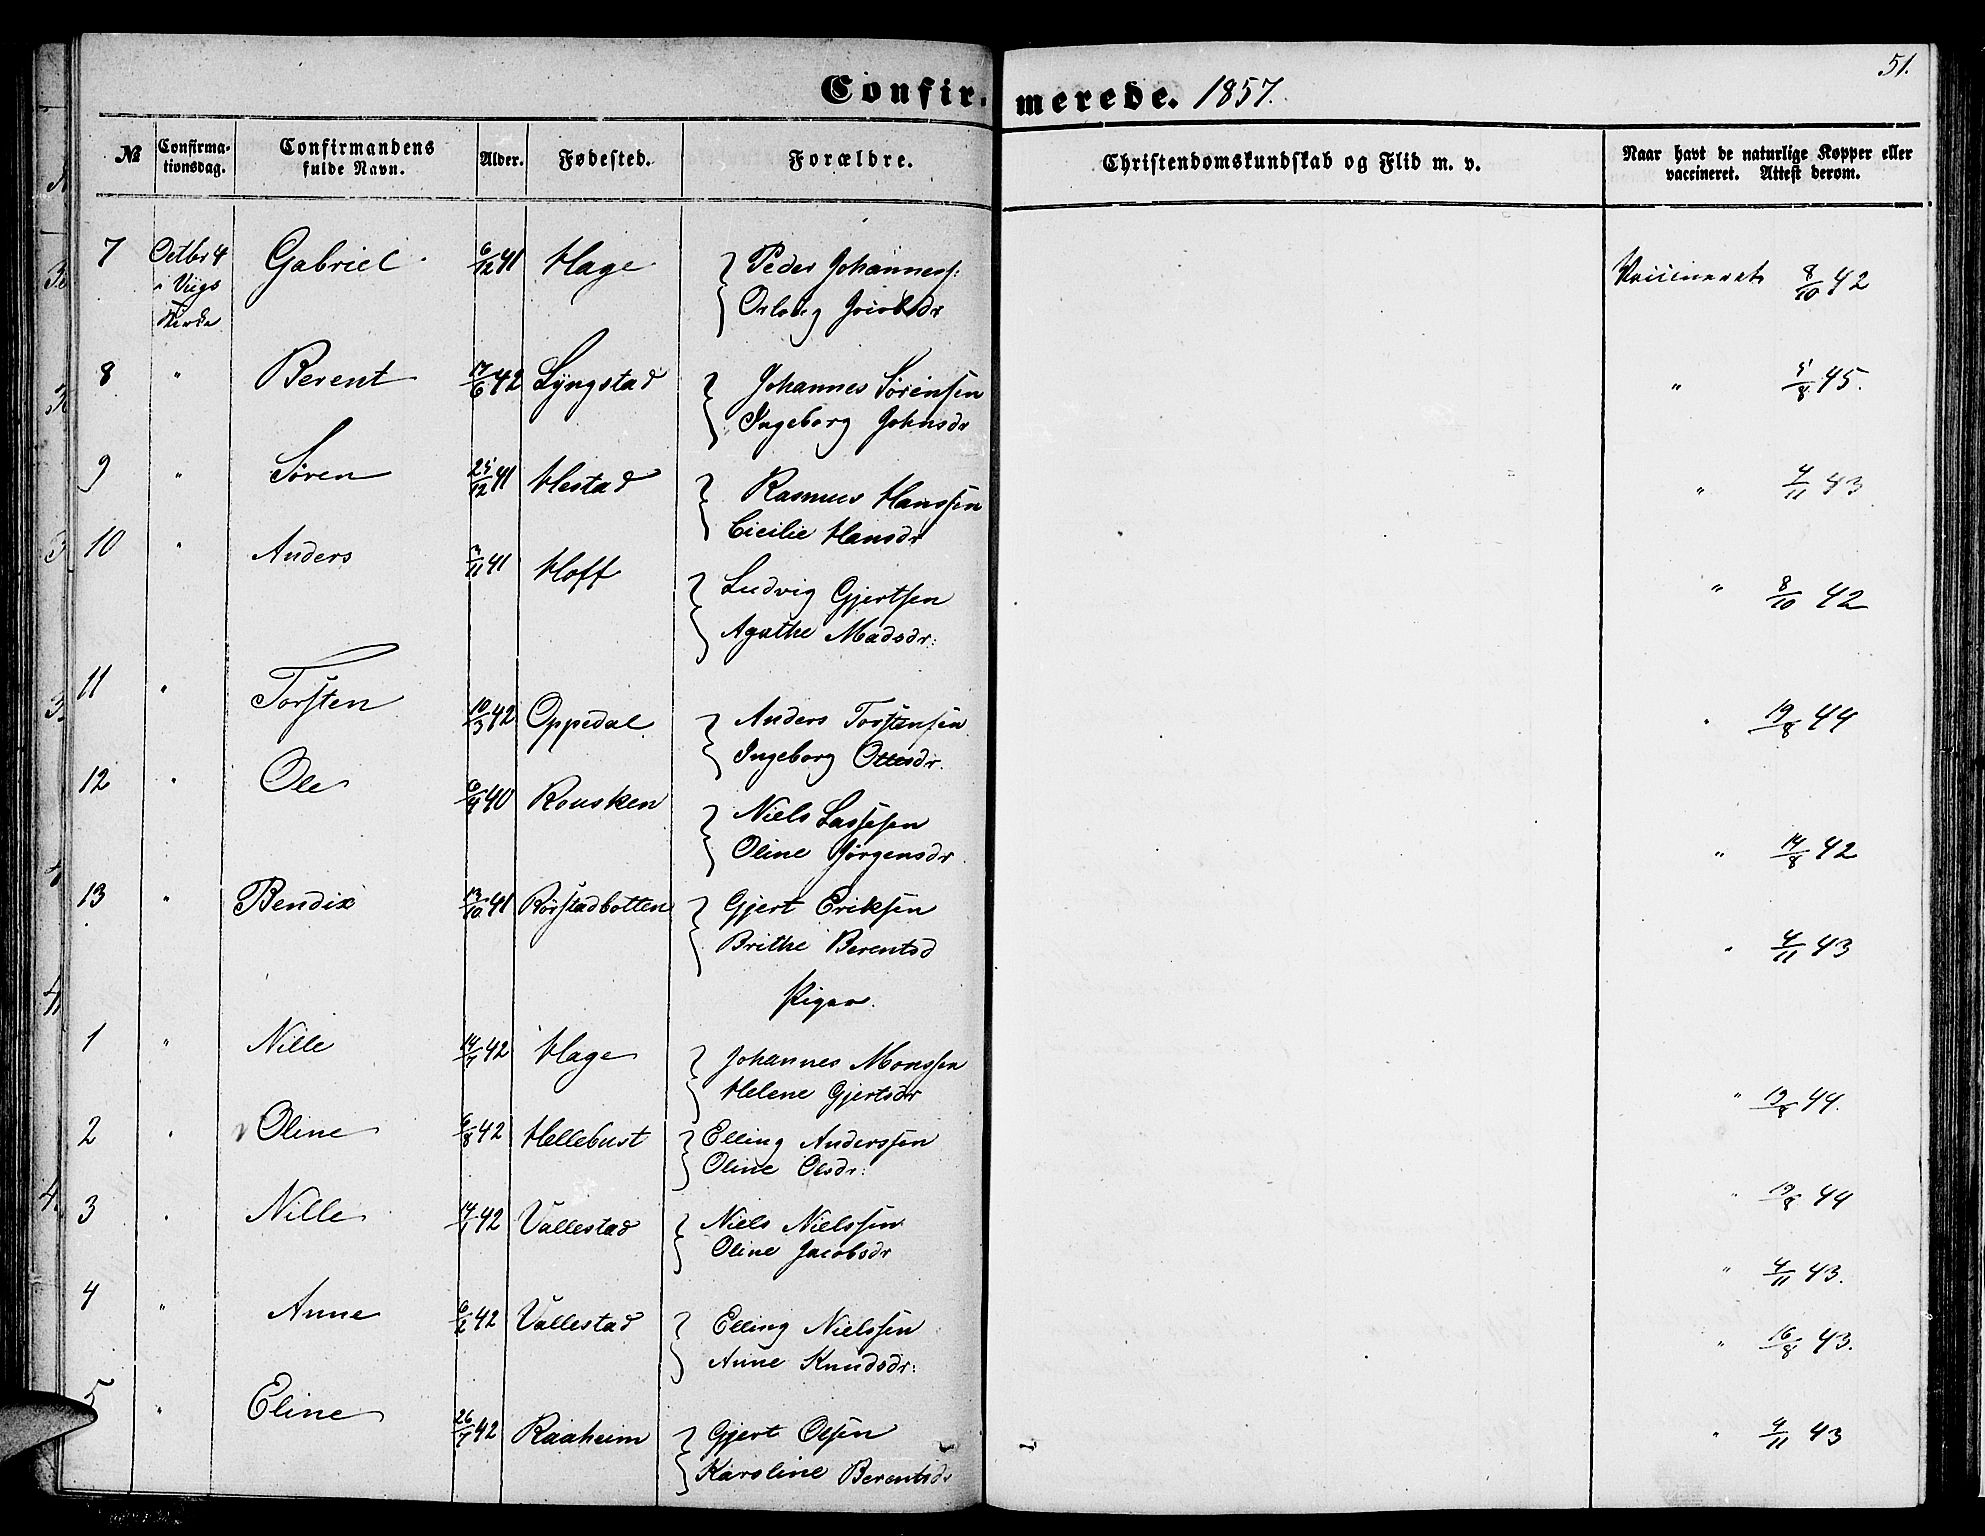 51.
Confirmerede. 1857.
№ Confirmationsdag. Confirmandens fulde Navn. Alder. Fødested. Forældre. Christendomskundskab og Flid m. v. Naar havt de naturlige Kopper eller vaccineret. Attest derom.
7 Octbr 4 i Viigs Kirke Gabriel 6/12 41 Hage Peder Johannes: Vaccineret 8/10 42
Jacobsdr
8 " Berent 17/6 42 Lyngstad Johannes Sørensen " 5/8 45.
Ingeborg Johnsdr
9 " Søren 25/12 41 Hestad Rasmus Hanssen " 4/11 43
Cicilie Hansdr
10 " Anders 3/11 41 Hoff Ludvig Gjertsen " 8/10 42
Agathe Madsdr:
11 " Torsten 10/3 42 Oppedal Anders Torstensen " 19/8 44
Ingeborg Ottesdr.
12 " Ole 40 Rousken Niels Lassesen " 14/8 42
Oline Jørgensdr
13 " Bendix 13/10 41 Rørstadbotten Gjert Eriksen " 4/11 43
Brithe Berentsd
Piger.
1 " Nille 14/7 42 Hage Johannes Monssen " 19/8 44.
Helene Gjertsdr
2 " Oline 6/8 42 Hellebust Elling Anderssen " 19/8 44
Oline Olsdr:
3 " Nille 14/1 42 Vallestad Niels Nielssen " 4/11 43.
Oline Jacobsdr
4 " Anne 6/2 42 Vallestad Elling Nielssen " 16/8 43.
Anne Knudsdr:
5 " Eline 26/7 42 Raaheim Gjert Olsen " 4/11 43
Karoline Berentsdr